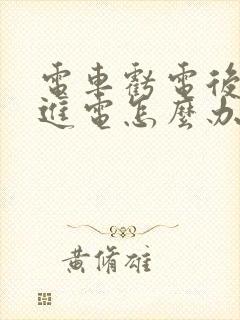 電車虧電後
進電怎麼办
黃脩雄